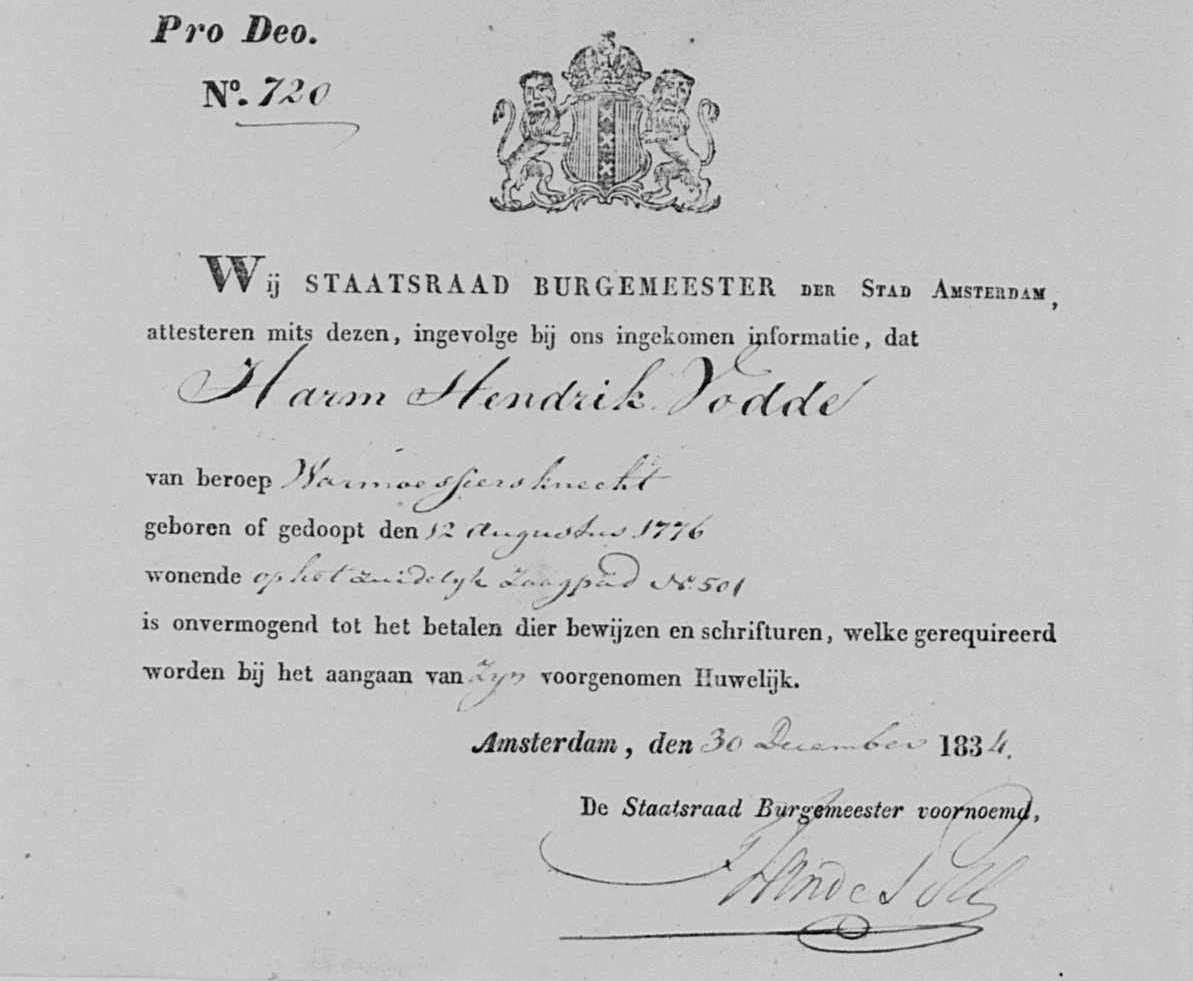 Pro Deo.
Nº. 720
Wij STAATSRAAD BURGEMEESTER DER STAD AMSTERDAM,
attesteren mits dezen, ingevolge bij ons ingekomen informatie, dat
Harm Hendrik Vodde
van beroep Warmoessiersknecht
geboren of gedoopt den 12 Augustus 1776
wonende op het zuidelyk Zaagpad Nº. 501
is onvermogend tot het betalen dier bewijzen en schrifturen, welke gerequireerd
worden bij het aangaan van Zyn voorgenomen Huwelijk.
Amsterdam, den 30 December 1834.
De Staatsraad Burgemeester voornoemd,